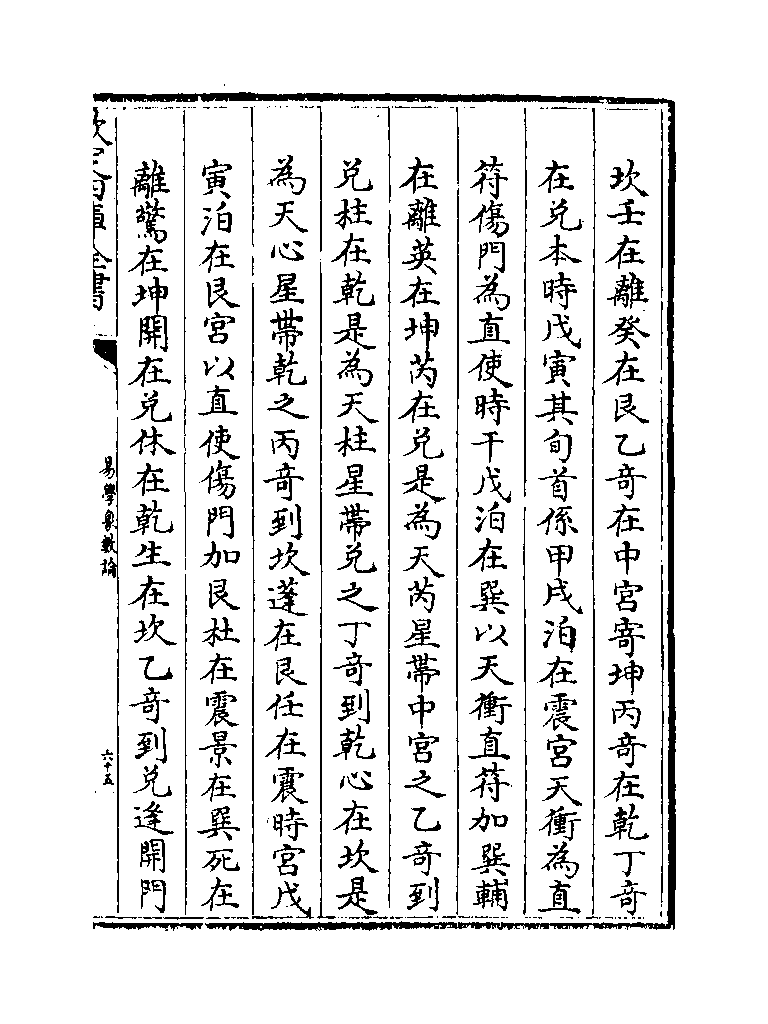 坎壬在離癸在艮乙奇在中宮寄坤丙奇在乾丁奇
在兌本時戊寅其旬首係甲戌泊在震宮天衝為直
符傷門為直使時干戊泊在巽以天衝直符加巽輔
在離英在坤芮在兌是為天芮星帶中宮之乙奇到
兌柱在乾是為天柱星帶兌之丁奇到乾心在坎是
為天心星帶乾之丙奇到坎蓬在艮任在震時宮戊
寅泊在艮宮以直使傷門加艮杜在震景在巽死在
離驚在坤開在兌休在乾生在坎乙奇到兌逢開門
欽定四庫全書
易學象數論
六十五